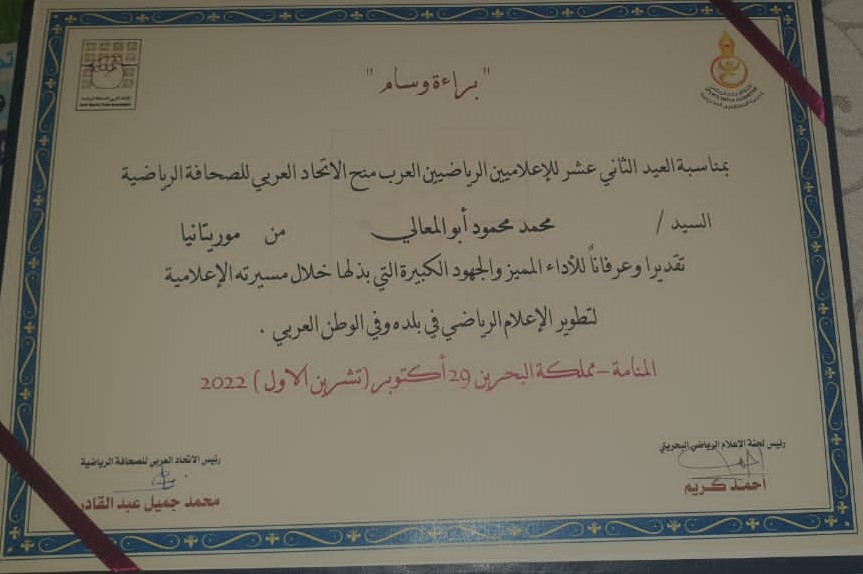 "براءة وسام"
بمناسبة العيد الثاني عشر للإعلاميين الرياضيين العرب منح الاتحاد العربي للصحافة الرياضية
السيد / محمد محمود أبو المعالي من موريتانيا
تقديرا وعرفاناً للأداء المميز والجهود الكبيرة التي بذلها خلال مسيرته الإعلامية
لتطوير الإعلام الرياضي في بلده وفي الوطن العربي .
المنامة - مملكة البحرين 29 أكتوبر (تشرين الاول) 2022
رئيس لجنة الاعلام الرياضي البحريني
أحمد كريم
رئيس الاتحاد العربي للصحافة الرياضية
محمد جميل عبد القادر